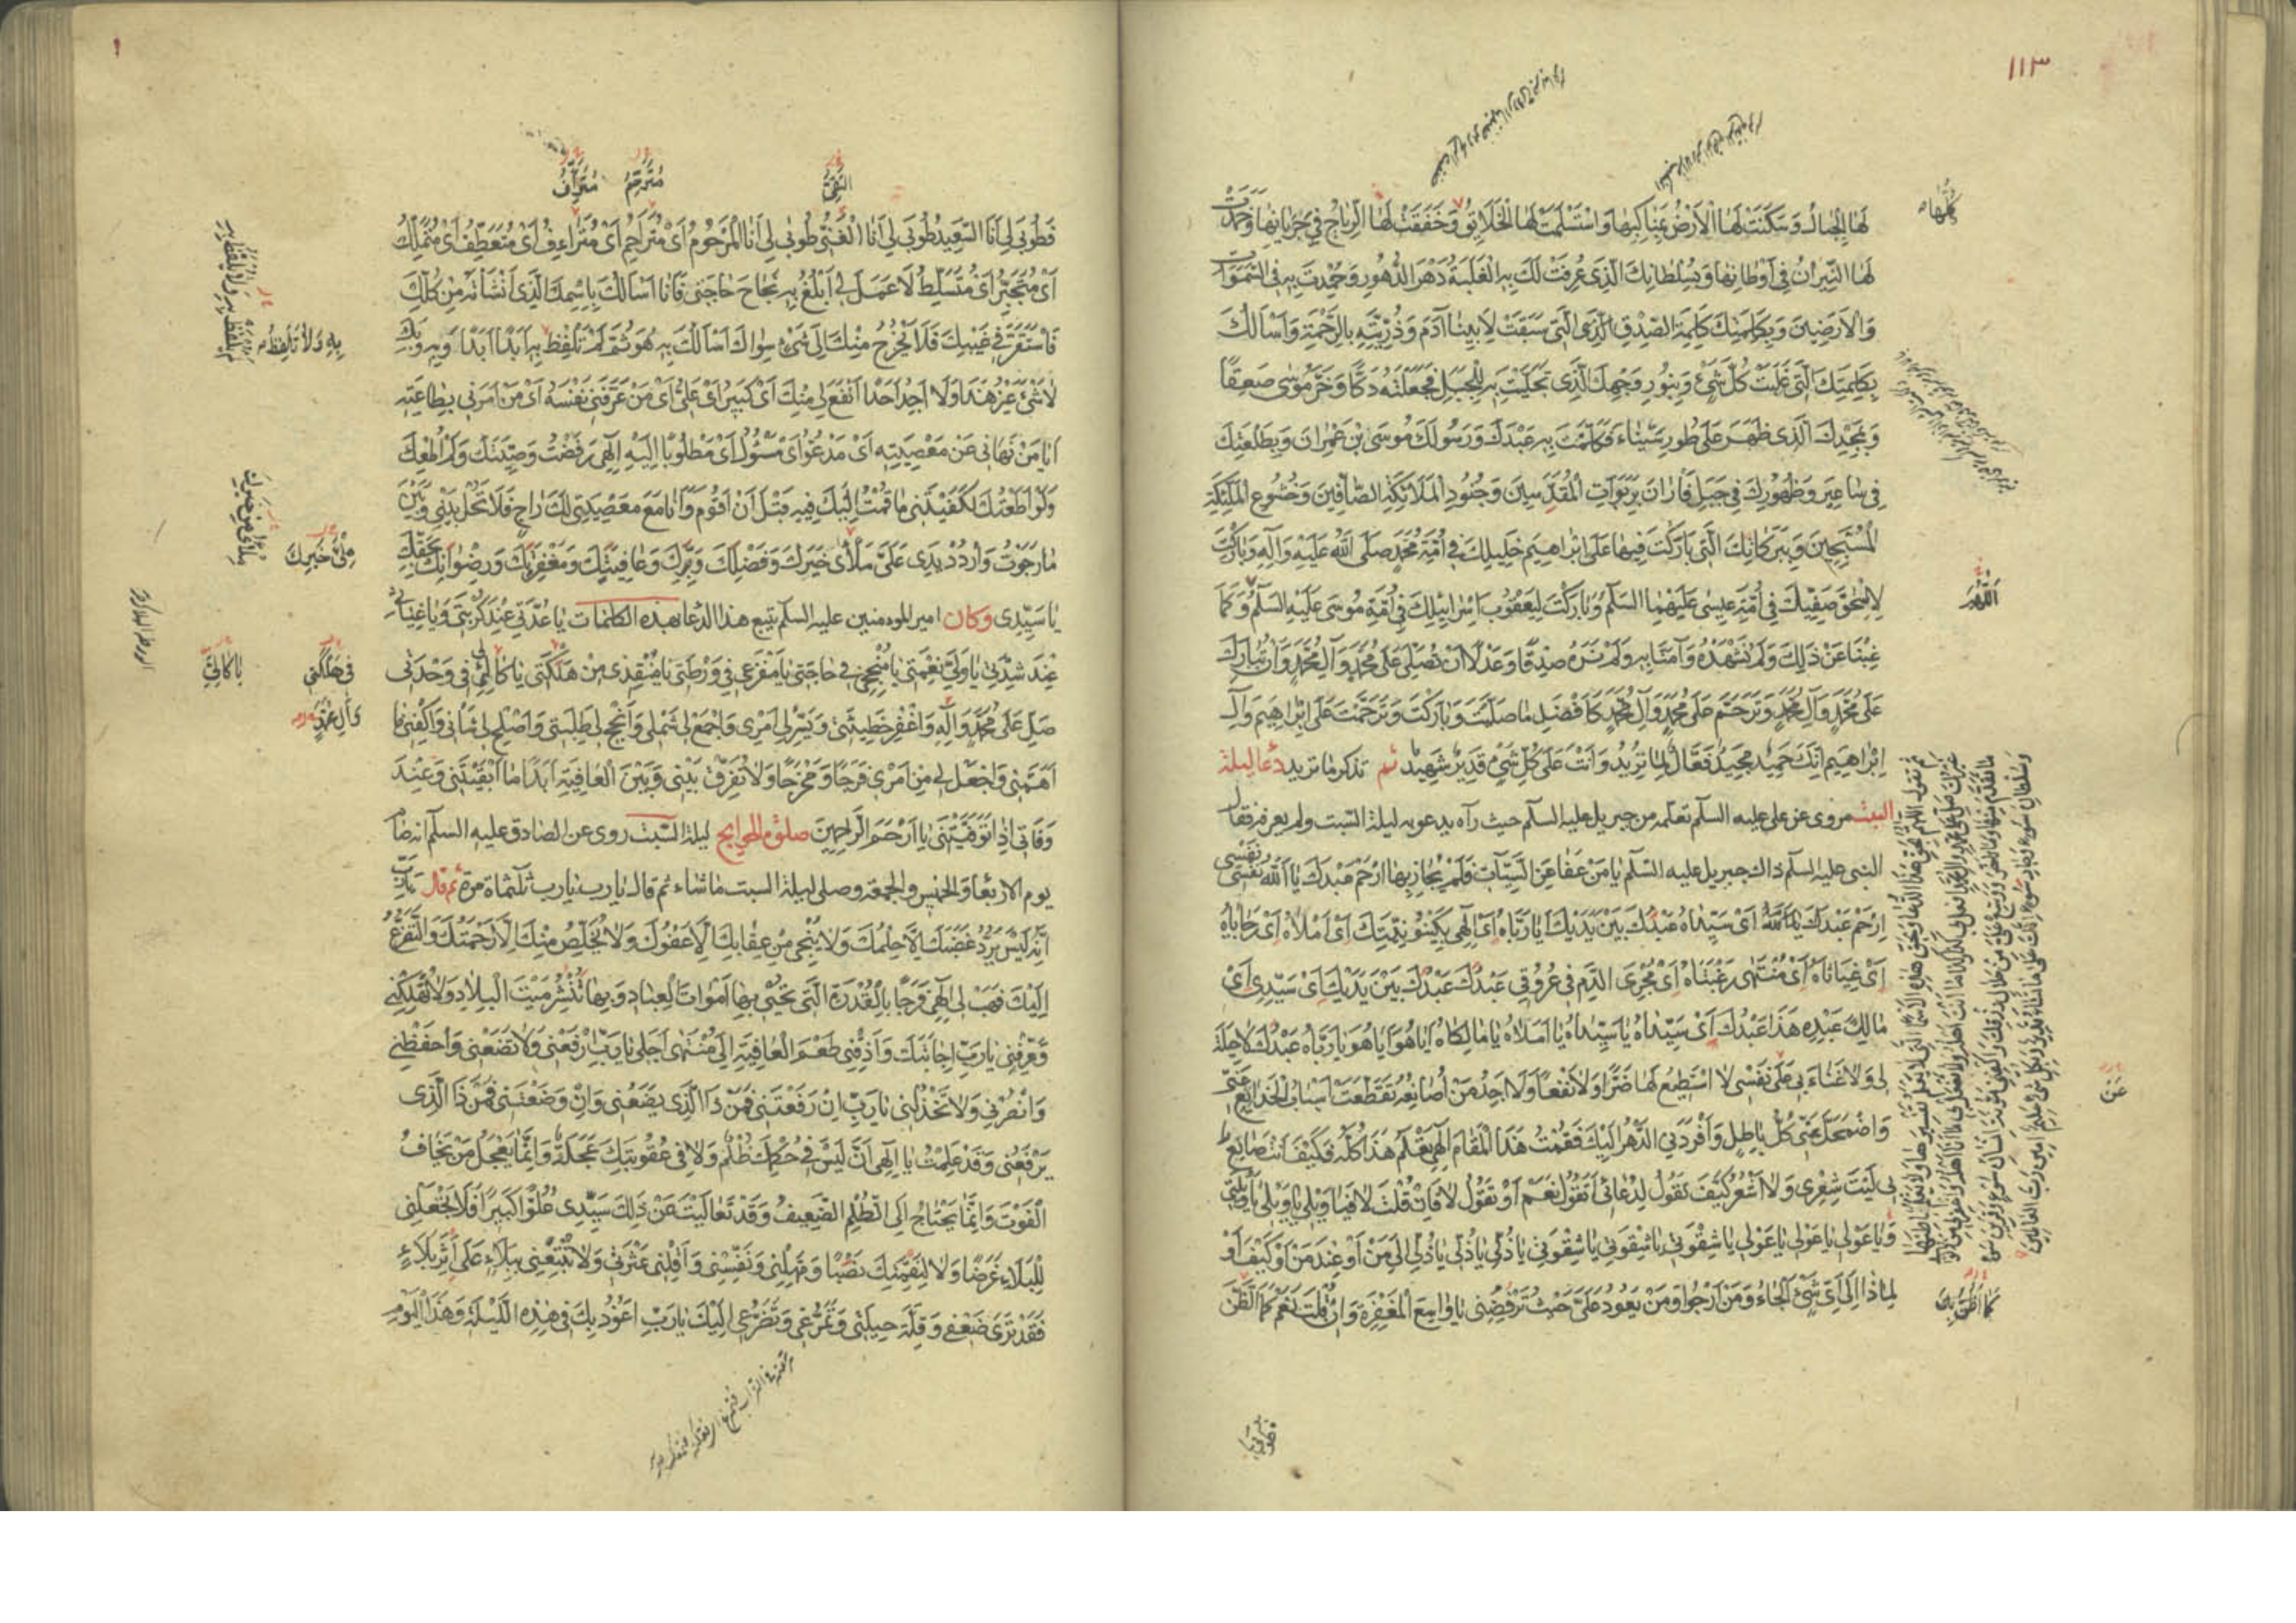 ١١٣
كُلُّهَا
لَهَا الْجِبَالُ وَسَكَنَتْ لَهَا الْأَرْضُ بِمَنَاكِبِهَا وَاسْتَسْلَمَتْ لَهَا الْخَلَائِقُ وَخَفَقَتْ لَهَا الرِّيَاحُ فِي جَرَيَانِهَا وَخَمَدَتْ
لَهَا النِّيرَانُ فِي أَوْطَانِهَا وَبِسُلْطَانِكَ الَّذِي عُرِفَتْ لَكَ بِهِ الْغَلَبَةُ دَهْرَ الدُّهُورِ وَحُمِدْتَ بِهِ فِي السَّمَوَاتِ
وَالْأَرَضِينَ وَبِكَلِمَتِكَ كَلِمَةِ الصِّدْقِ الَّتِي سَبَقَتْ لِأَبِينَا آدَمَ وَذُرِّيَّتِهِ بِالرَّحْمَةِ وَأَسْأَلُكَ
بِكَلِمَتِكَ الَّتِي غَلَبَتْ كُلَّ شَيْءٍ وَبِنُورِ وَجْهِكَ الَّذِي تَجَلَّيْتَ بِهِ لِلْجَبَلِ فَجَعَلْتَهُ دَكًّا وَخَرَّ مُوسَى صَعِقًا
وَبِمَجْدِكَ الَّذِي ظَهَرَ عَلَى طُورِ سَيْنَاءَ فَكَلَّمْتَ بِهِ عَبْدَكَ وَرَسُولَكَ مُوسَى بْنَ عِمْرَانَ وَبِطَلْعَتِكَ
فِي سَاعِيرَ وَظُهُورِكَ فِي جَبَلِ فَارَانَ بِرَبَوَاتِ الْمُقَدَّسِينَ وَجُنُودِ الْمَلَائِكَةِ الصَّافِّينَ وَخُشُوعِ الْمَلَائِكَةِ
الْمُسَبِّحِينَ وَبِبَرَكَاتِكَ الَّتِي بَارَكْتَ فِيهَا عَلَى إِبْرَاهِيمَ خَلِيلِكَ فِي أُمَّةِ مُحَمَّدٍ صَلَّى اللَّهُ عَلَيْهِ وَآلِهِ وَبَارَكْتَ
لِإِسْحَقَ صَفِيِّكَ فِي أُمَّةِ عِيسَى عَلَيْهِمَا السَّلَامُ وَبَارَكْتَ لِيَعْقُوبَ إِسْرَائِيلِكَ فِي أُمَّةِ مُوسَى عَلَيْهِ السَّلَامُ وَكَمَا
اللَّهُمَّ
غِبْنَا عَنْ ذَلِكَ وَلَمْ نَشْهَدْهُ وَآمَنَّا بِهِ وَلَمْ نَرَهُ صِدْقًا وَعَدْلًا أَنْ تُصَلِّيَ عَلَى مُحَمَّدٍ وَآلِ مُحَمَّدٍ وَأَنْ تُبَارِكَ
عَلَى مُحَمَّدٍ وَآلِ مُحَمَّدٍ وَتَرَحَّمَ عَلَى مُحَمَّدٍ وَآلِ مُحَمَّدٍ كَأَفْضَلِ مَا صَلَّيْتَ وَبَارَكْتَ وَتَرَحَّمْتَ عَلَى إِبْرَاهِيمَ وَآلِ
إِبْرَاهِيمَ إِنَّكَ حَمِيدٌ مَجِيدٌ فَعَّالٌ لِمَا تُرِيدُ وَأَنْتَ عَلَى كُلِّ شَيْءٍ قَدِيرٌ شَهِيدٌ ثم تذكر ما تريد دعاء ليلة
السبت مروى عن على عليه السلم تعلمه من جبريل عليه السلم حيث رآه يدعو به ليلة السبت ولم يعرفه فقال
النبى عليه السلم ذاك جبريل عليه السلم يَا مَنْ عَفَا عَنِ السَّيِّئَاتِ فَلَمْ يُجَازِ بِهَا ارْحَمْ عَبْدَكَ يَا اللَّهُ نَفْسِي نَفْسِي
ارْحَمْ عَبْدَكَ يَا اللَّهُ أَيْ سَيِّدَاهُ عَبْدُكَ بَيْنَ يَدَيْكَ أَيَا رَبَّاهُ أَيْ إِلَهِي بِكَيْنُونِيَّتِكَ أَيْ أَمَلَاهُ أَيْ رَجَايَاهُ
أَيْ غِيَاثَاهُ أَيْ مُنْتَهَى رَغْبَتَاهُ أَيْ مُجْرِيَ الدَّمِ فِي عُرُوقِي عَبْدُكَ عَبْدُكَ بَيْنَ يَدَيْكَ أَيْ سَيِّدِي أَيْ
مَالِكَ عَبْدِهِ هَذَا عَبْدُكَ أَيْ سَيِّدَاهُ يَا سَيِّدَاهُ يَا أَمَلَاهُ يَا مَالِكَاهُ أَيَا هُوَ أَيَا هُوَ يَا رَبَّاهُ عَبْدُكَ لَا حِيلَةَ
لِي وَلَا غَنَاءَ بِي عَلَى نَفْسِي لَا أَسْتَطِيعُ لَهَا ضَرًّا وَلَا نَفْعًا وَلَا أَجِدُ مَنْ أُصَانِعُهُ تَقَطَّعَتْ أَسْبَابُ الْخَدَائِعِ عَنِّي
عَنْ
وَاضْمَحَلَّ عَنِّي كُلُّ بَاطِلٍ وَأَفْرَدَنِي الدَّهْرُ إِلَيْكَ فَقُمْتُ هَذَا الْمَقَامَ إِلَهِي بِعِلْمِكَ هَذَا كُلُّهُ فَكَيْفَ أَنْتَ صَانِعٌ
بِي لَيْتَ شِعْرِي وَلَا أَشْعُرُ كَيْفَ تَقُولُ لِدُعَائِي أَتَقُولُ نَعَمْ أَوْ تَقُولُ لَا فَإِنْ قُلْتَ لَا فَيَا وَيْلِي يَا وَيْلِي يَا وَيْلِي
وَيَا عَوْلِي يَا عَوْلِي يَا عَوْلِي يَا شِقْوَتِي يَا شِقْوَتِي يَا شِقْوَتِي يَا ذُلِّي يَا ذُلِّي يَا ذُلِّي إِلَى مَنْ أَوْ عِنْدَ مَنْ أَوْ كَيْفَ أَوْ
لِمَاذَا إِلَى أَيِّ شَيْءٍ أَلْجَأُ وَمَنْ أَرْجُو وَمَنْ يَعُودُ عَلَيَّ حَيْثُ تَرْفُضُنِي يَا وَاسِعَ الْمَغْفِرَةِ وَإِنْ قُلْتَ نَعَمْ كَمَا الظَّنُّ
كَمَا أَظُنُّ بِكَ
فَطُوبَى لِي
النَّقِيُّ
مُتَرَحِّمُ
مُتَرَئِّفُ
فَطُوبَى لِي أَنَا السَّعِيدُ طُوبَى لِي أَنَا الْغَنِيُّ طُوبَى لِي أَنَا الْمَرْحُومُ أَيْ مُتَرَاحِمُ أَيْ مُتَرَائِفُ أَيْ مُتَعَطِّفُ أَيْ مُتَمَلِّكُ
أَيْ مُتَجَبِّرُ أَيْ مُتَسَلِّطُ لَا عَمَلَ لِي أَبْلُغُ بِهِ نَجَاحَ حَاجَتِي فَأَنَا أَسْأَلُكَ بِاسْمِكَ الَّذِي أَنْشَأْتَهُ مِنْ كُلِّكَ
فَاسْتَقَرَّ فِي غَيْبِكَ فَلَا يَخْرُجُ مِنْكَ إِلَى شَيْءٍ سِوَاكَ أَسْأَلُكَ بِهِ هُوَ ثُمَّ لَمْ تَلْفِظْ بِهِ أَبَدًا أَبَدًا وَبِهِ وَبِكَ
بِهِ وَلَا تَلْفِظُ
لَا شَيْءَ غَيْرُ هَذَا وَلَا أَجِدُ أَحَدًا أَنْفَعَ لِي مِنْكَ أَيْ كَبِيرُ أَيْ عَلِيُّ أَيْ مَنْ عَرَّفَنِي نَفْسَهُ أَيْ مَنْ أَمَرَنِي بِطَاعَتِهِ
أَيَا مَنْ نَهَانِي عَنْ مَعْصِيَتِهِ أَيْ مَدْعُوُّ أَيْ مَسْئُولُ أَيْ مَطْلُوبًا إِلَيْهِ إِلَهِي رَفَضْتُ وَصِيَّتَكَ وَلَمْ أُطِعْكَ
وَلَوْ أَطَعْتُكَ لَكَفَيْتَنِي مَا قُمْتُ إِلَيْكَ فِيهِ قَبْلَ أَنْ أَقُومَ وَأَنَا مَعَ مَعْصِيَتِي لَكَ رَاجٍ فَلَا تَحُلْ بَيْنِي وَبَيْنَ
مَا رَجَوْتُ وَارْدُدْ يَدِي عَلَيَّ مَلْأَى خَيْرَكَ وَفَضْلِكَ وَبِرِّكَ وَعَافِيَتِكَ وَمَغْفِرَتِكَ وَرِضْوَانِكَ بِحَقِّكَ
يَا سَيِّدِي وكان امير المومنين عليه السلم يتبع هذا الدعا بهذه الكلمات يَا عُدَّتِي عِنْدَ كُرْبَتِي وَيَا غِيَاثِي
عِنْدَ شِدَّتِي يَا وَلِيَّ نِعْمَتِي يَا مُنْجِحِي فِي حَاجَتِي يَا مَفْزَعِي فِي وَرْطَتِي يَا مُنْقِذِي مِنْ هَلَكَتِي يَا كَالِئِي فِي وَحْدَتِي
فِي هَلَكَتِي
صَلِّ عَلَى مُحَمَّدٍ وَآلِهِ وَاغْفِرْ خَطِيئَتِي وَيَسِّرْ لِي أَمْرِي وَاجْمَعْ لِي شَمْلِي وَأَنْجِحْ لِي طَلِبَتِي وَأَصْلِحْ لِي شَأْنِي وَاكْفِنِي مَا
وَآلِ مُحَمَّدٍ
أَهَمَّنِي وَاجْعَلْ لِي مِنْ أَمْرِي فَرَجًا وَمَخْرَجًا وَلَا تُفَرِّقْ بَيْنِي وَبَيْنَ الْعَافِيَةِ أَبَدًا مَا أَبْقَيْتَنِي وَعِنْدَ
وَفَاتِي إِذَا تَوَفَّيْتَنِي يَا أَرْحَمَ الرَّاحِمِينَ صلوة الحوايج ليلة السبت روى عن الصادق عليه السلم انه صام
يوم الاربعا والخميس والجمعة وصلى ليلة السبت ما شاء ثم قال يا رب يا رب ثلثماة مرة ثم قال يَا رَبِّ
إِنَّهُ لَيْسَ يَرُدُّ غَضَبَكَ إِلَّا حِلْمُكَ وَلَا يُنْجِي مِنْ عِقَابِكَ إِلَّا عَفْوُكَ وَلَا يُخَلِّصُ مِنْكَ إِلَّا رَحْمَتُكَ وَالتَّضَرُّعُ
إِلَيْكَ فَهَبْ لِي إِلَهِي فَرَجًا بِالْقُدْرَةِ الَّتِي تُحْيِي بِهَا أَمْوَاتَ الْعِبَادِ وَبِهَا تُنْشِرُ مَيْتَ الْبِلَادِ وَلَا تُهْلِكْنِي
وَعَرِّفْنِي يَا رَبِّ إِجَابَتَكَ وَأَذِقْنِي طَعْمَ الْعَافِيَةِ إِلَى مُنْتَهَى أَجَلِي يَا رَبِّ ارْفَعْنِي وَلَا تَضَعْنِي وَاحْفَظْنِي
وَانْصُرْنِي وَلَا تَخْذُلْنِي يَا رَبِّ إِنْ رَفَعْتَنِي فَمَنْ ذَا الَّذِي يَضَعُنِي وَإِنْ وَضَعْتَنِي فَمَنْ ذَا الَّذِي
يَرْفَعُنِي وَقَدْ عَلِمْتُ يَا إِلَهِي أَنْ لَيْسَ فِي حُكْمِكَ ظُلْمٌ وَلَا فِي عُقُوبَتِكَ عَجَلَةٌ وَإِنَّمَا يَعْجَلُ مَنْ يَخَافُ
الْفَوْتَ وَإِنَّمَا يَحْتَاجُ إِلَى الظُّلْمِ الضَّعِيفُ وَقَدْ تَعَالَيْتَ عَنْ ذَلِكَ سَيِّدِي عُلُوًّا كَبِيرًا فَلَا تَجْعَلْنِي
لِلْبَلَاءِ غَرَضًا وَلَا لِنِقْمَتِكَ نَصْبًا وَمَهِّلْنِي وَنَفِّسْنِي وَأَقِلْنِي عَثْرَتِي وَلَا تُتْبِعْنِي بِبَلَاءٍ عَلَى أَثَرِ بَلَاءٍ
فَقَدْ تَرَى ضَعْفِي وَقِلَّةَ حِيلَتِي وَتَمَرُّغِي وَتَضَرُّعِي إِلَيْكَ يَا رَبِّ أَعُوذُ بِكَ فِي هَذِهِ اللَّيْلَةِ وَهَذَا الْيَوْمِ